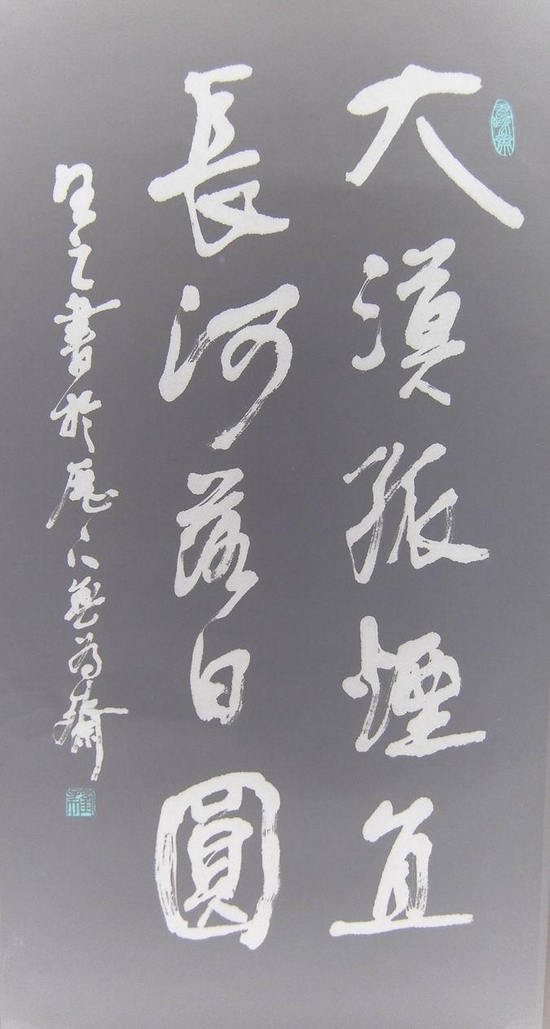 大漠孤煙直
長河落日圓
之書於
無為齋